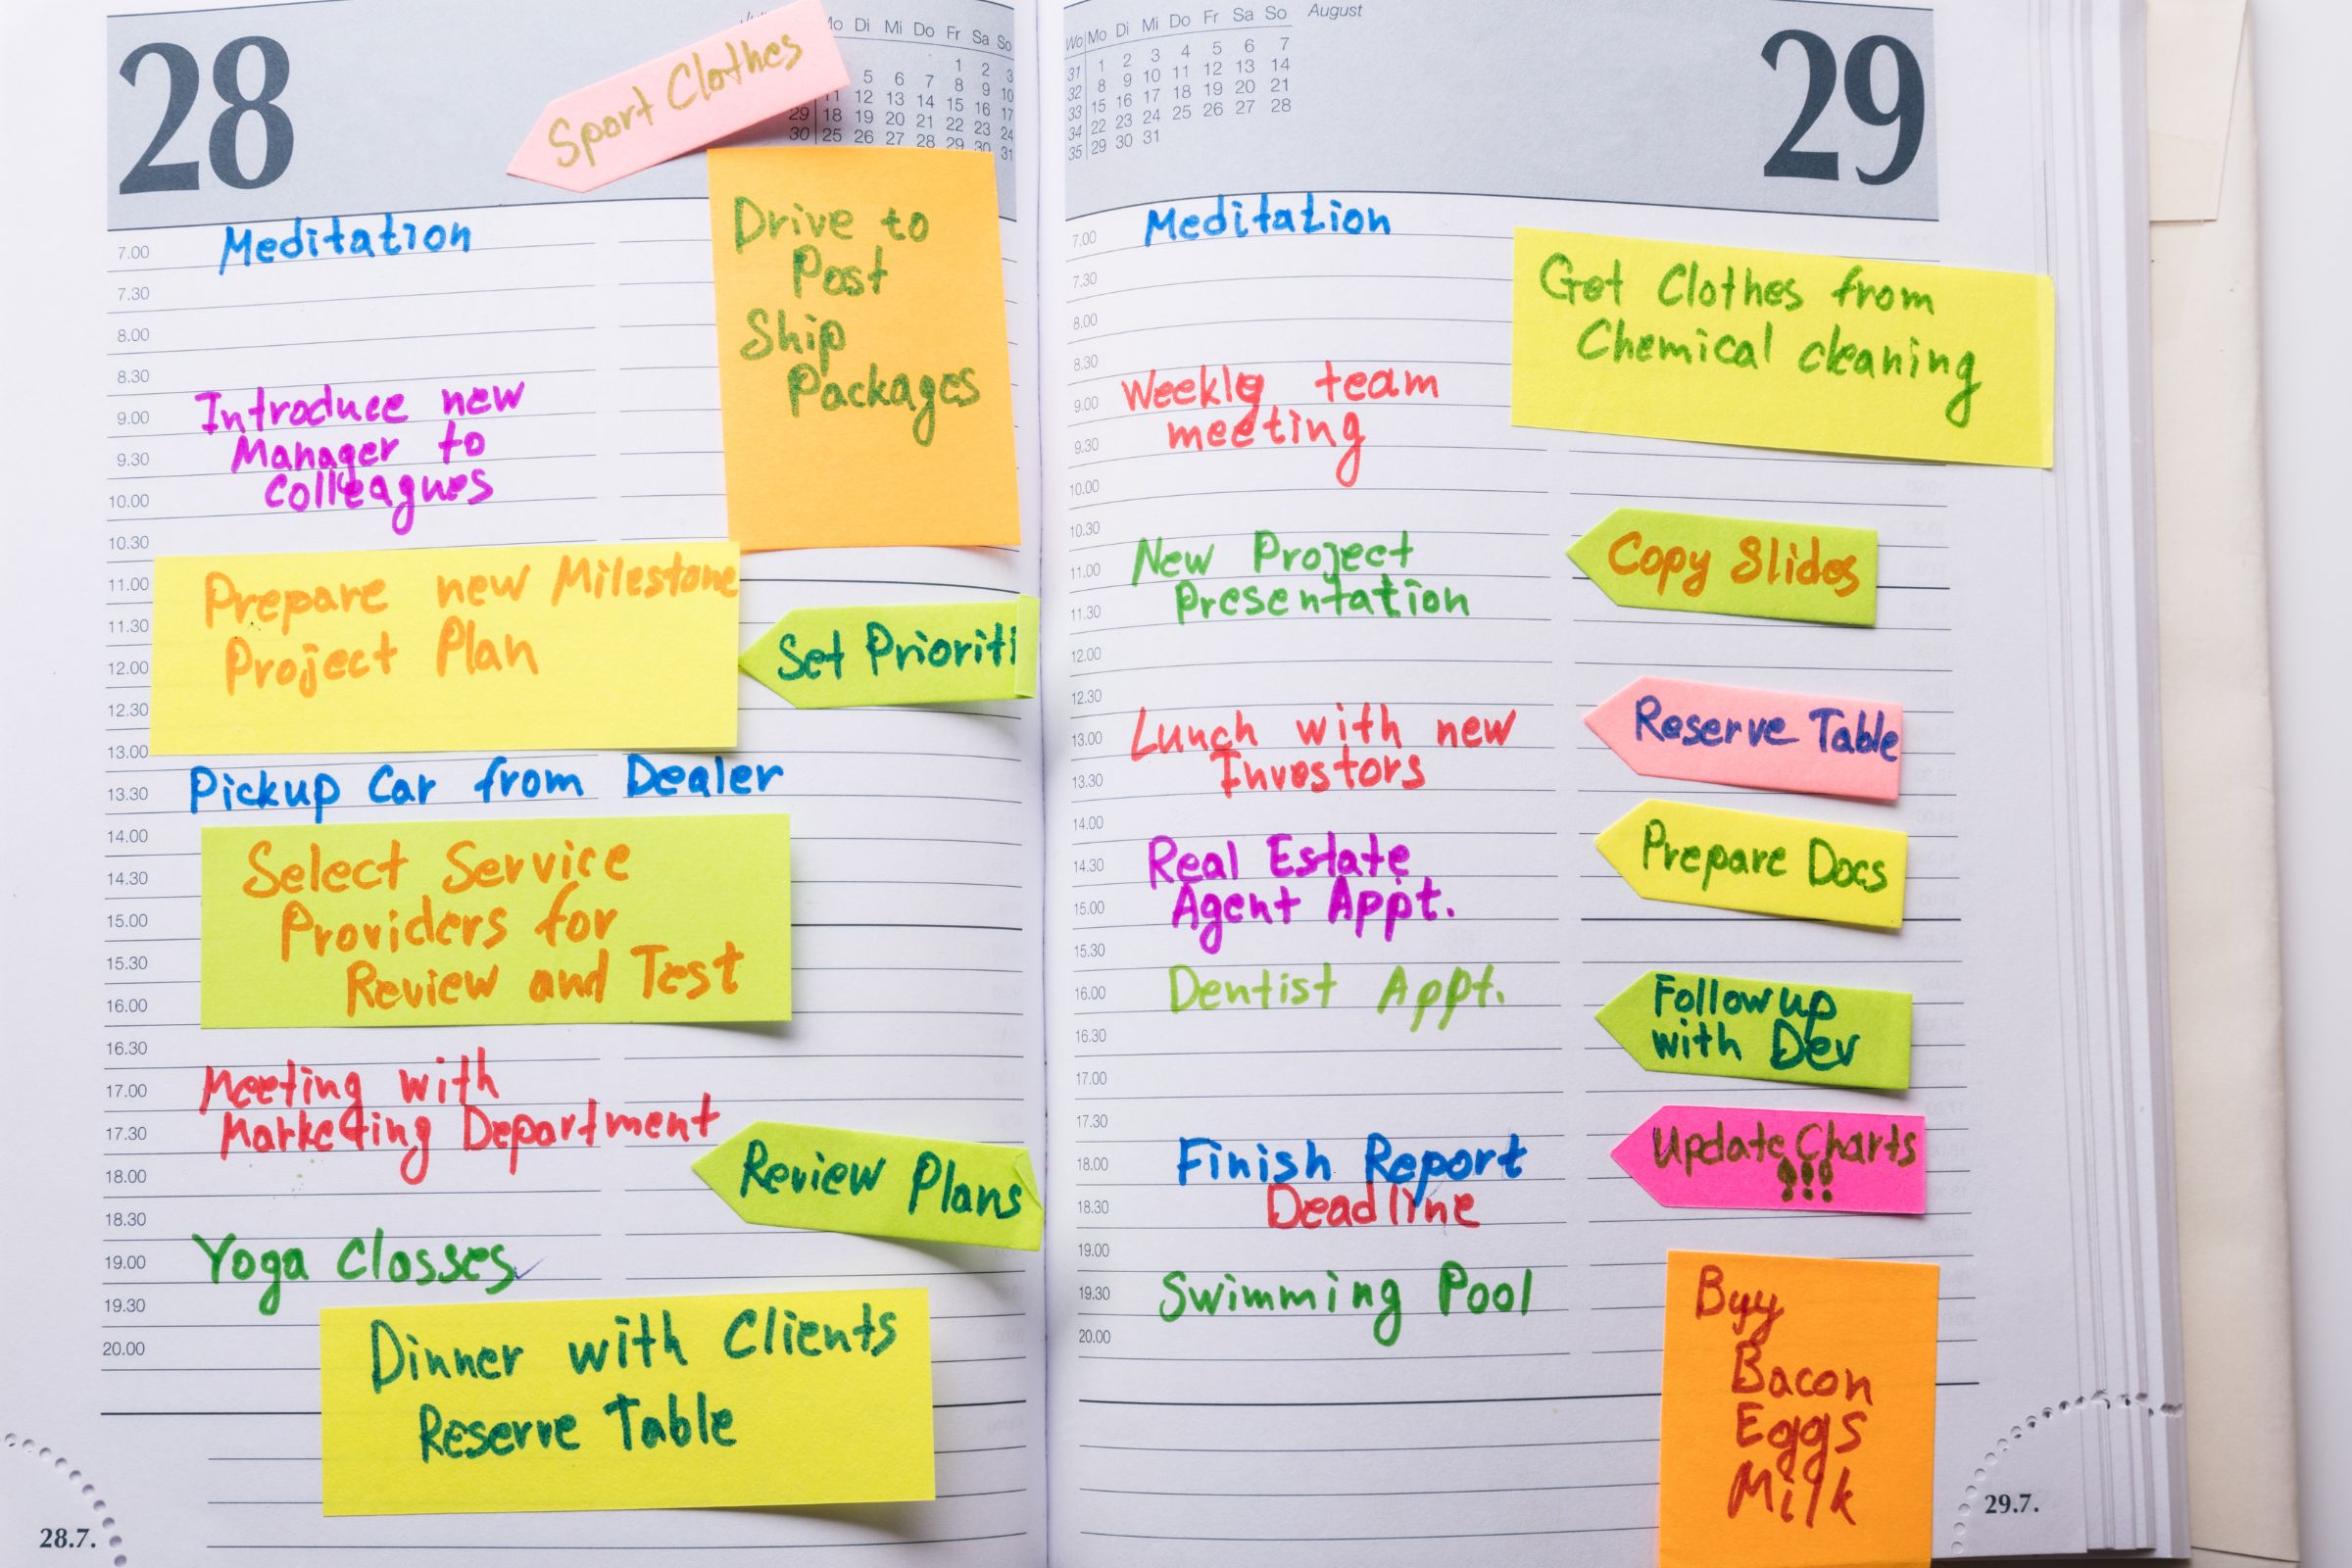 28
Sport Clothes
Mo Di Mi Do Fr Sa So
1 2 3
5 6 7 8 9 10
11 12 13 14 15 16 17
29 18 19 20 21 22 23 24
30 25 26 27 28 29 30 31
Drive to
Post
Ship
Packages
7.00 Meditation
7.30
8.00
8.30
9.00 Introduce new
9.30 Manager to
10.00 Colleagues
10.30
11.00 Prepare new Milestone
11.30 Project Plan
12.00
12.30
Set Prioriti
13.00
13.30 Pickup Car from Dealer
14.00
14.30 Select Service
15.00 Providers for
15.30 Review and Test
16.00
16.30
17.00 Meeting with
17.30 Marketing Department
18.00
Review Plans
18.30
19.00 Yoga Classes
19.30
20.00
Dinner with Clients
Reserve Table
28.7.
Wo Mo Di Mi Do Fr Sa So August
31 1 2 3 4 5 6 7
32 8 9 10 11 12 13 14
33 15 16 17 18 19 20 21
34 22 23 24 25 26 27 28
35 29 30 31
29
7.00 Meditation
7.30
8.00
Get Clothes from
Chemical cleaning
8.30
9.00 Weekly team
9.30 meeting
10.00
10.30
11.00 New Project
11.30 Presentation
Copy Slides
12.00
12.30
13.00 Lunch with new
13.30 Investors
Reserve Table
14.00
14.30 Real Estate
15.00 Agent Appt.
Prepare Docs
15.30
16.00 Dentist Appt.
16.30
Follow up
with Dev
17.00
17.30
18.00 Finish Report
18.30 Deadline
Update Charts
!!!
19.00
19.30 Swimming Pool
20.00
Buy
Bacon
Eggs
Milk
29.7.